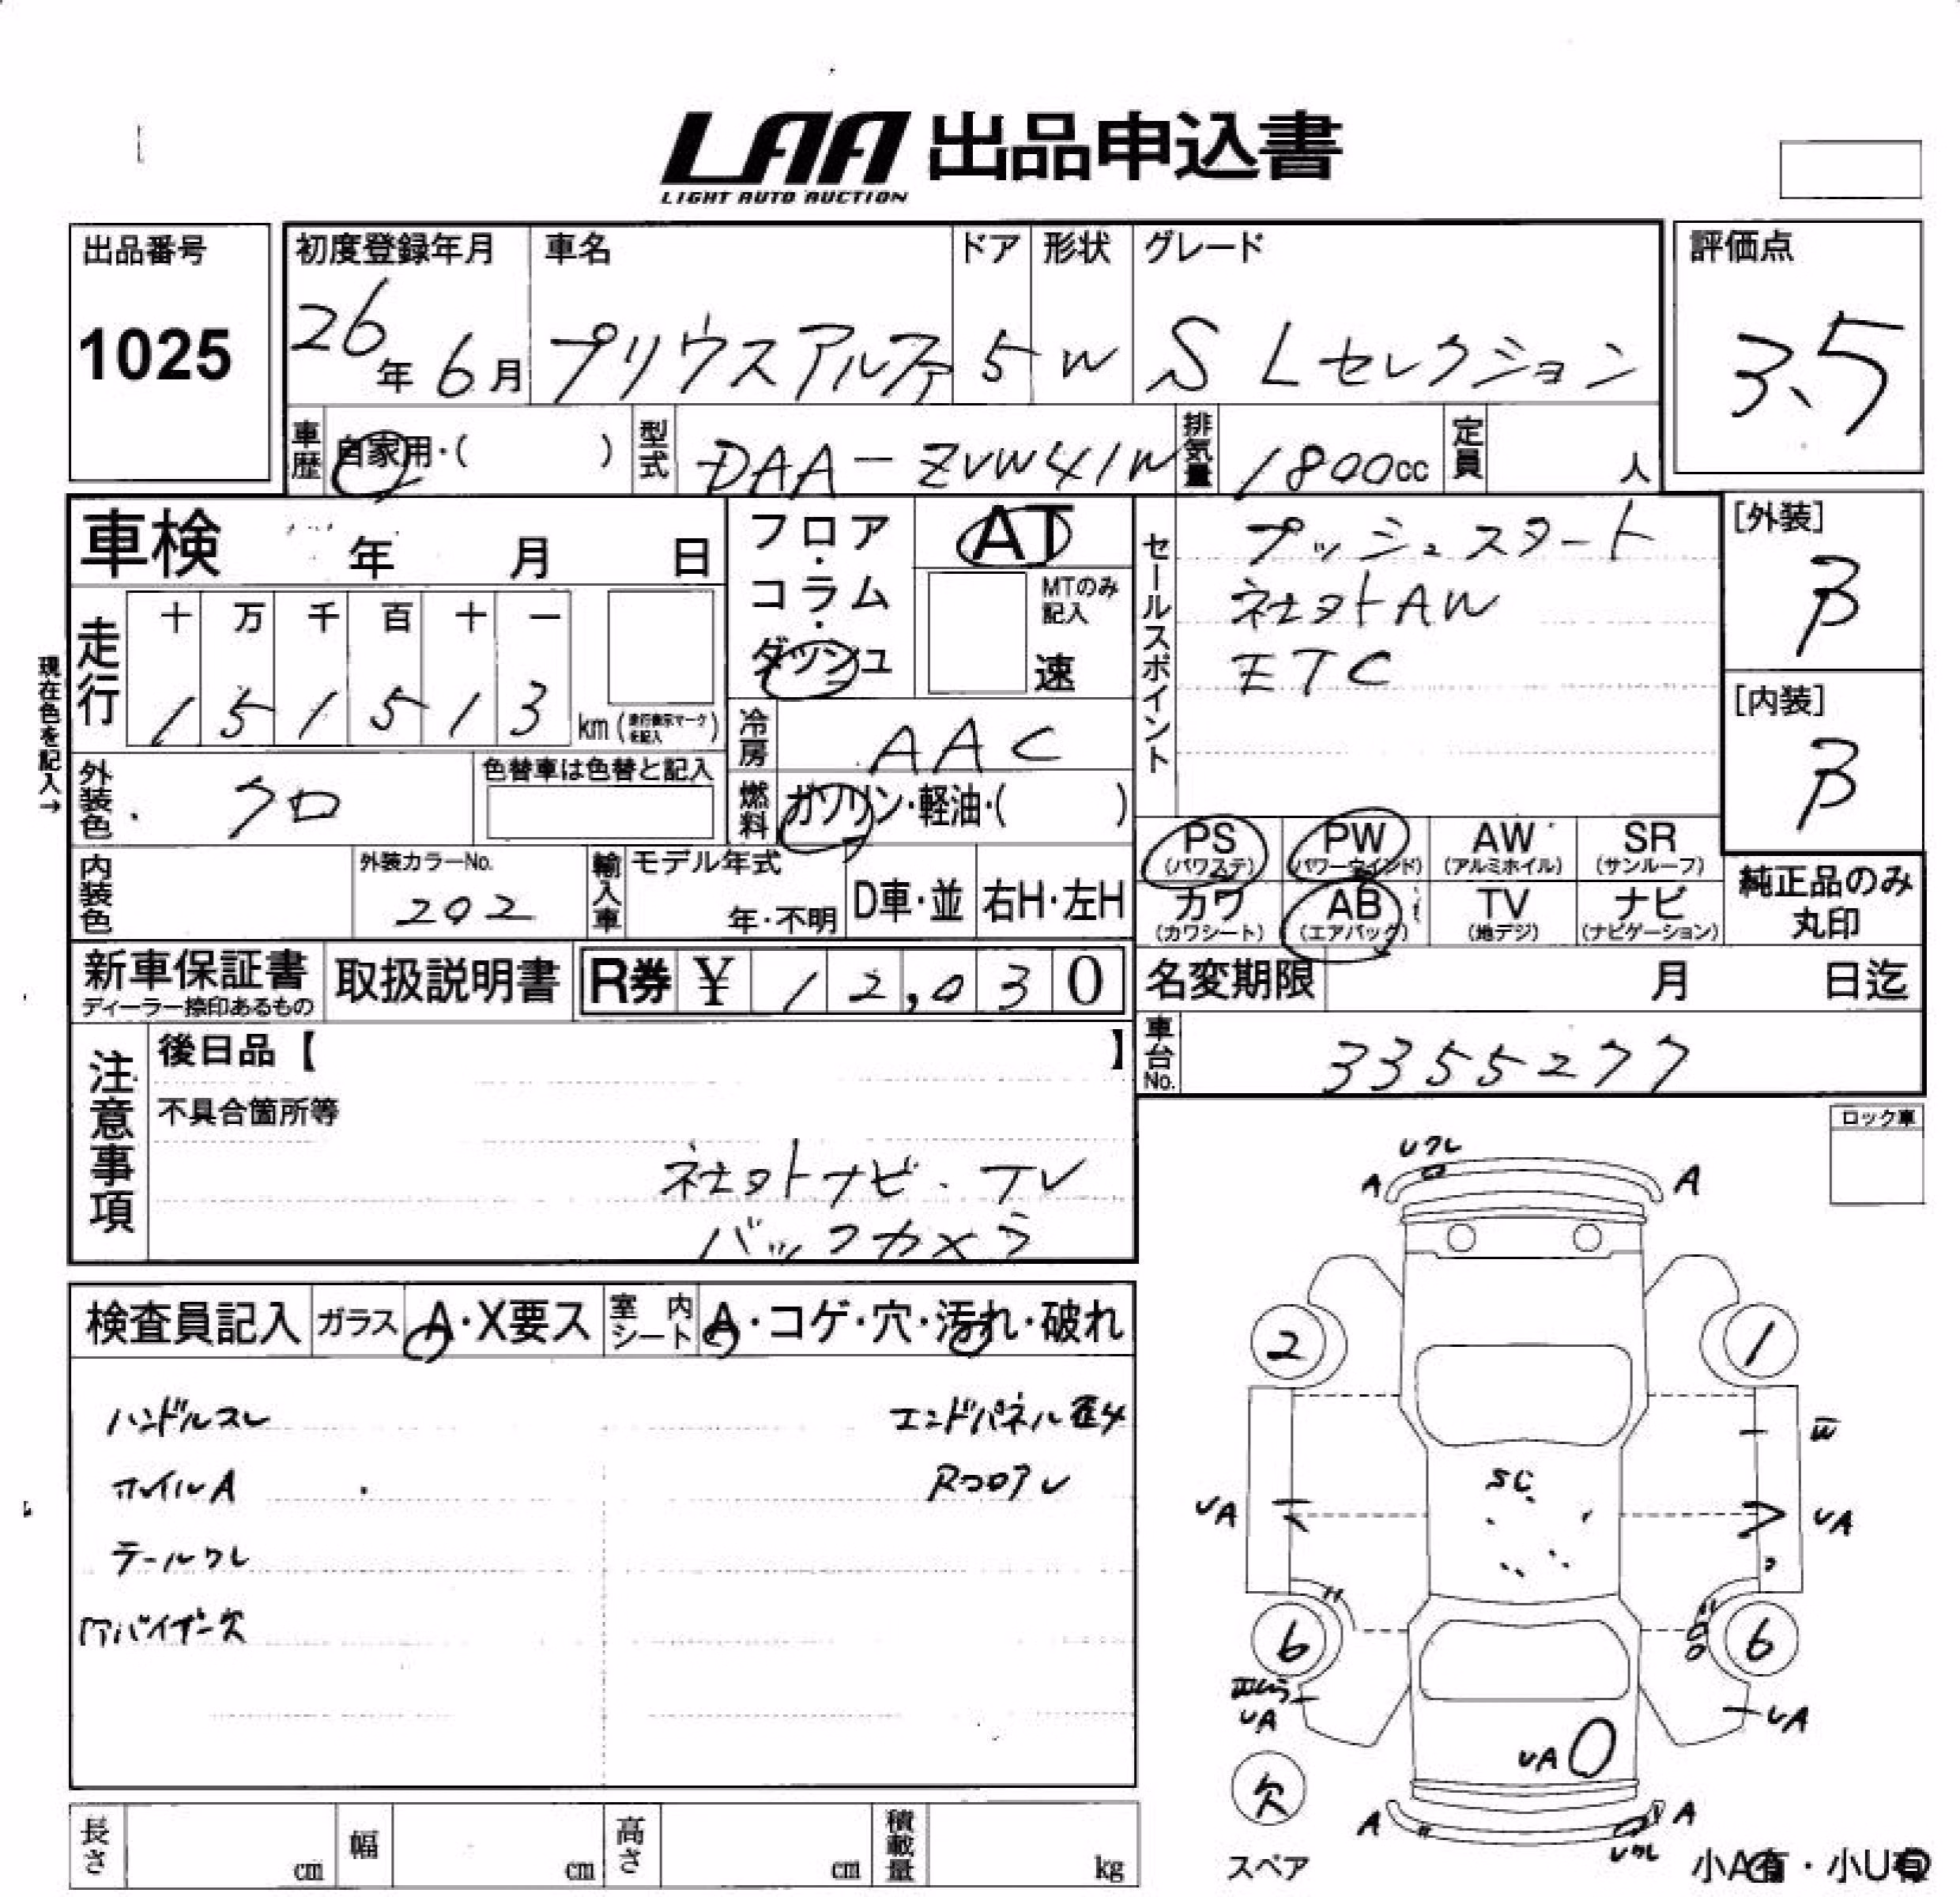 LAA 出品申込書
LIGHT AUTO AUCTION
出品番号
1025
初度登録年月
26年 6月
車名
プリウスアルファ
ドア
5
形状
W
グレード
S Lセレクション
評価点
3.5
車歴 自家用・( )
型式 DAA-ZVW41W
排気量 1800cc
定員 人
車検 年 月 日
フロア・コラム・ダッシュ
AT
MTのみ記入
速
セールスポイント
プッシュスタート
社外AW
ETC
[外装]
B
[内装]
B
現在色を記入→
走行
十 万 千 百 十 一
1 5 1 5 1 3 km (走行表示マークを記入)
冷房 AAC
燃料 ガソリン・軽油・( )
外装色 クロ
色替車は色替と記入
内装色
外装カラーNo.
202
輸入車
モデル年式
年・不明
D車・並
右H・左H
PS (パワステ)
PW (パワーウインド)
AW (アルミホイル)
SR (サンルーフ)
カワ (カワシート)
AB (エアバック)
TV (地デジ)
ナビ (ナビゲーション)
純正品のみ丸印
新車保証書
ディーラー捺印あるもの
取扱説明書
R券 ¥ 12,030
名変期限 月 日迄
車台No. 3355277
注意事項
後日品【 】
不具合箇所等
社外ナビ・TV
バックカメラ
ロック車
検査員記入
ガラス A・X要ス
室内シート A・コゲ・穴・汚れ・破れ
ハンドルスレ
エンドパネル
ホイルA
RコアU
テールワレ
バイザー欠
Uワレ
A A
2 1
W
SC
UA UA
6 6
UA UA
UA
欠
スペア
A A
Uワレ
小A有・小U有
長さ cm
幅 cm
高さ cm
積載量 kg